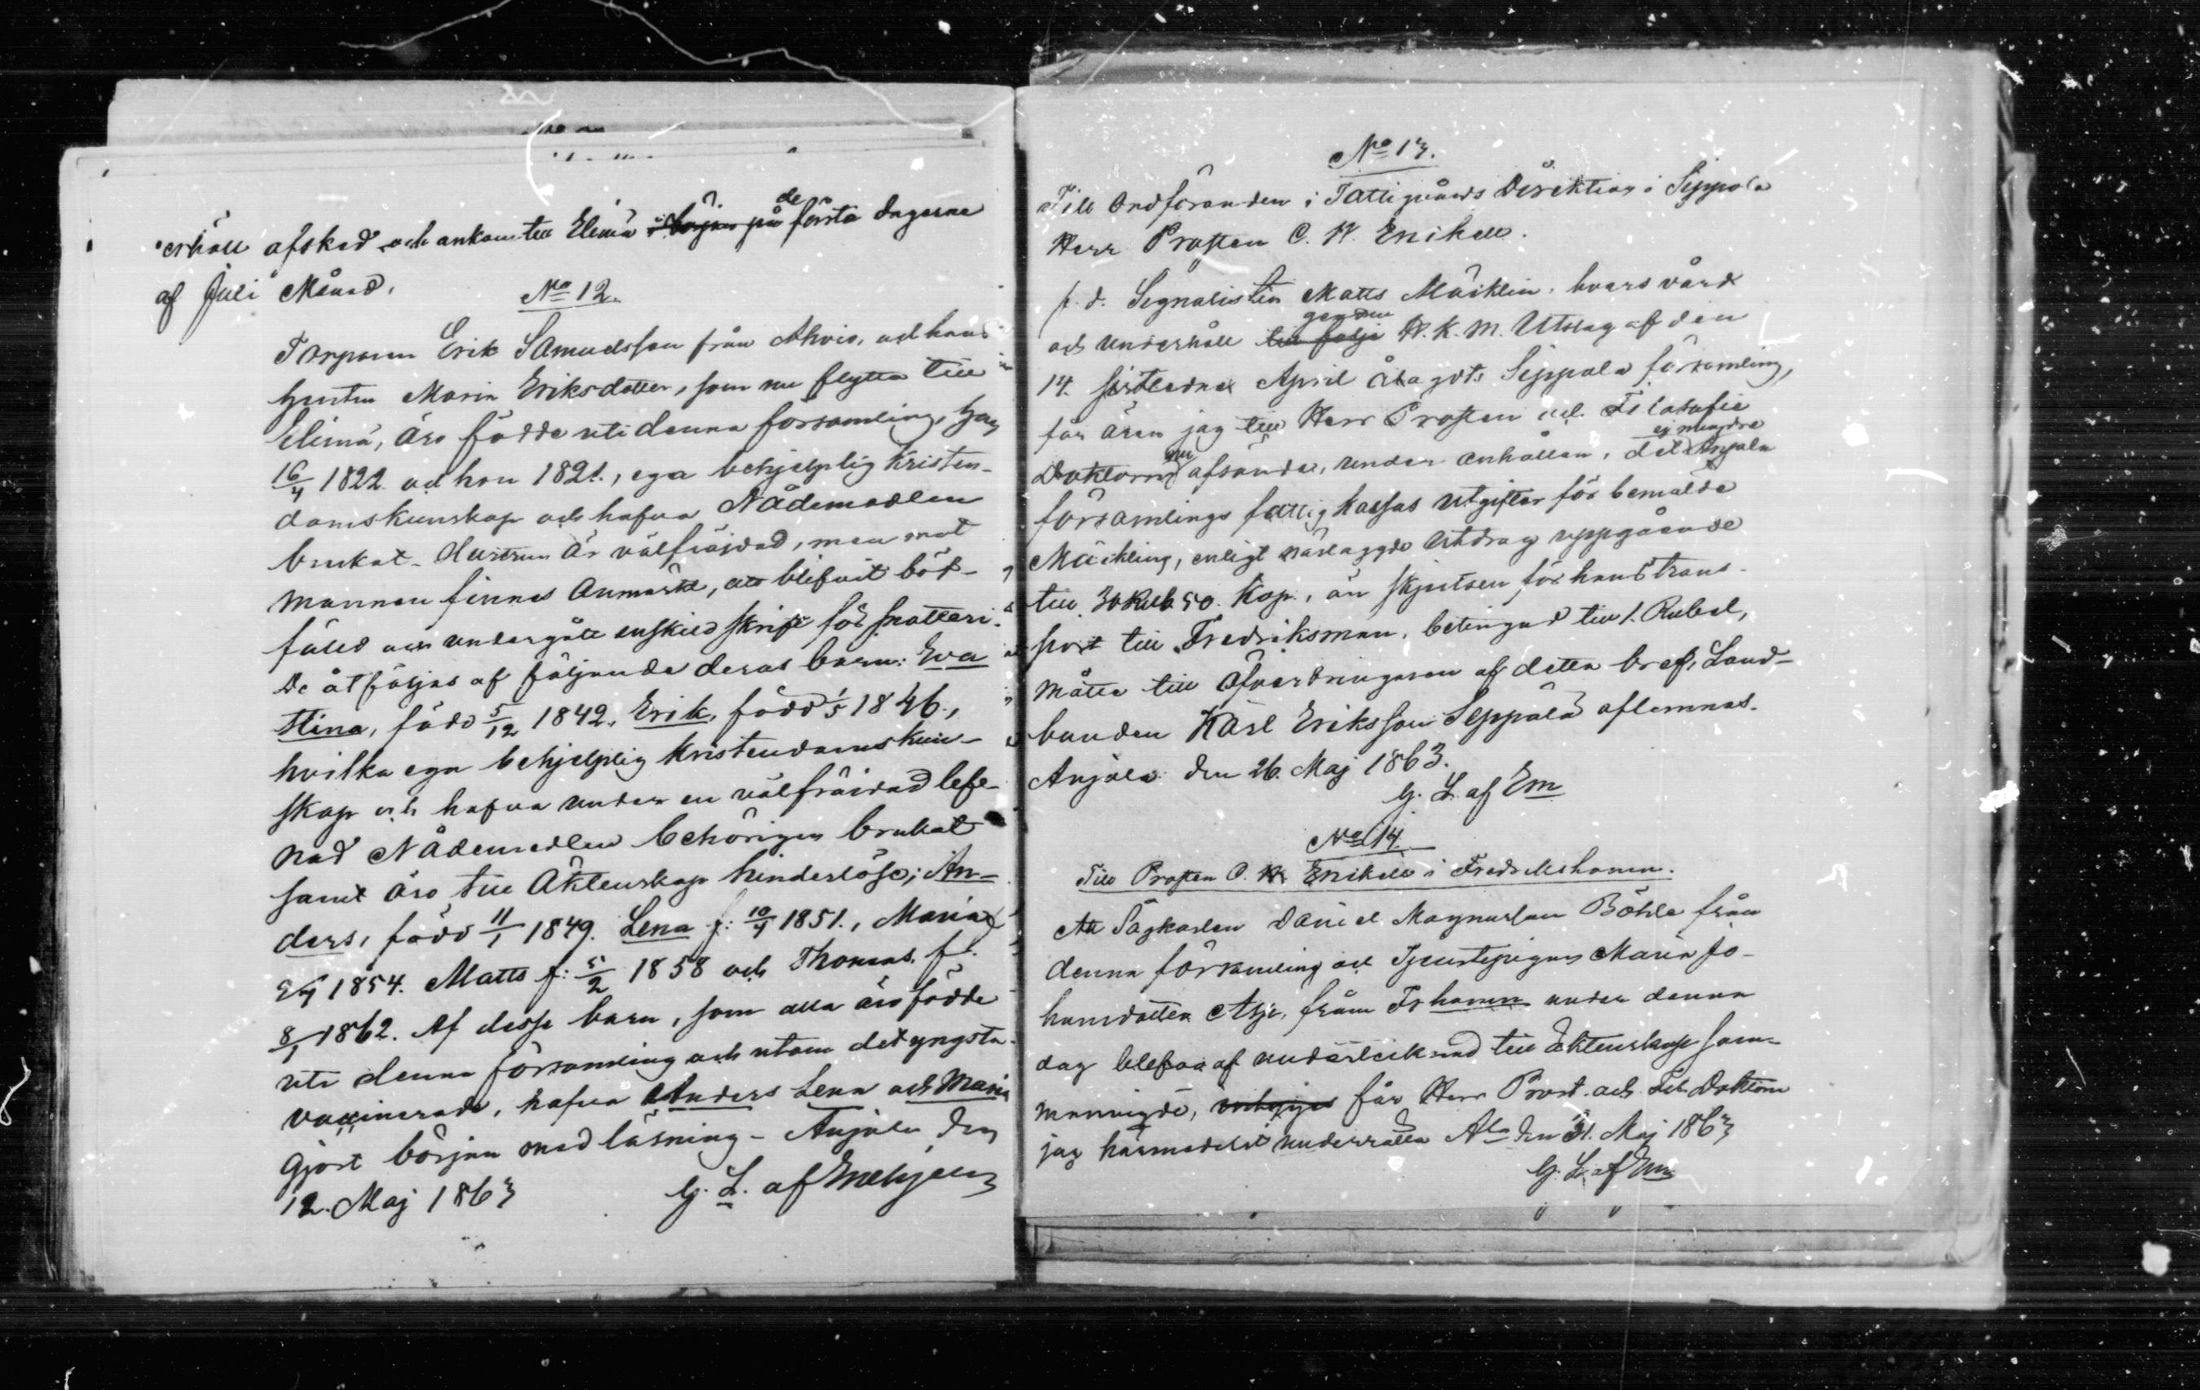 erhöll afsked och ankom till Elimä i början på de första dagarne
af Juli Månad.
No 12.
Torparen Erik Samuelsson från Ahvio, och hans
hustru Maria Eriksdotter, som nu flytta till
Elimä, äro födde uti denna församling, han
16/4 1822 och hon 1821., ega behjelplig Kristen-
domskunskap och hafva Nådemedlen
brukat. Hustrun är välfräjdad, men mot
mannen finnes anmärkt, att blifvit böt-
fäld och undergått enskild skrift för snatteri.
De åtföljas af följande deras barn: Eva
Stina, född 5/12 1842, Erik, född 1/5 1846,
hvilka ega behjelplig kristendomskun-
skap och hafva under en välfräjdad lef-
nad Nådemedlen behörigen brukat
samt äro till Äktenskap hinderlöse; An-
ders, född 11/1 1849. Lena f: 10/4 1851., Maria f.
1854. Matts f: 5/2 1858 och Thomas f.
8/1 1862. Af desse barn, som alla äro födde
uti denna församling och utom det yngsta
vaccinerade, hafva Anders Lena och Maria
gjort början med läsning. Anjala den
12. Maj 1863
G. L. af Enehjelm
No 13.
Till Ordföranden i Fattigvårds Direktion i Sippola
Herr Prosten C. W. Enikell.
f. d. Signalisten Matts Mäcklin, hvars vård
och underhåll till följe genom H. K. M. Utslag af den
14. sistledne April ålagdts Sippola församling,
får äran jag till Herr Prosten och Filosofie
Doktorn nu afsända, under anhållan, det ej mindre Anjala
församlings fattigkassas utgifter för bemälde
Mäcklin, enligt närlagde utdrag uppgående
till 30 Rub. 50 Kop., än skjutsen för hans trans-
port till Fredrikshamn, betingad till 1. Rubel,
måtte till Öfverbringaren af detta bref, Land-
bonden Karl Eriksson Seppälä aflemnas.
Anjala den 26. Maj 1863.
G. L. af Em
No 14.
Till Prosten C. W. Enikell i Fredrikshamn.
Att Sågkarlen Daniel Magnusson Böhle från
denna församling och Tjenstepigan Maria Jo-
hansdotter från Frhamn under denna
dag blefvo af undertecknad till Äktenskap sam-
manvigde, får Herr Prost. och Fil. Doktorn
jag härmedelst underrätta Ala den 31. Maj 1863
G. L. af Em